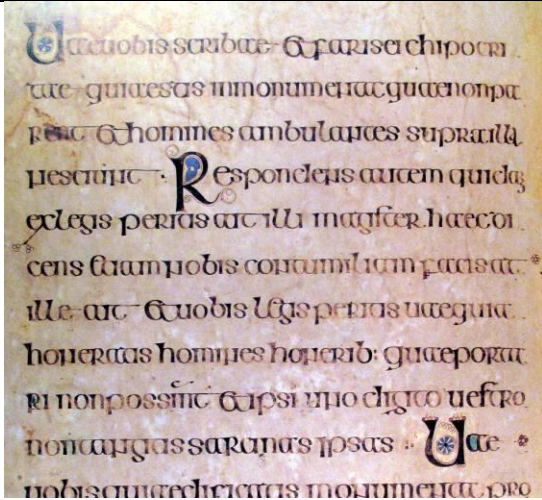 Uae uobis scribae et farisei chipocri
tae quia estis inmonumenta quae nonpa
rent et homines ambulantes supra illa
nesciunt · Respondens autem quidam
exlegis peritis ait illi magister haec di
cens etiam nobis contumiliam facis at
ille ait et uobis legis peritis uae quia
honeratis homines honerib: quae porta
ri nonpossunt et ipsi uno digito uestro
non tangitis sarcinas ipsas : Uae
uobis qui aedificatis monumenta pro